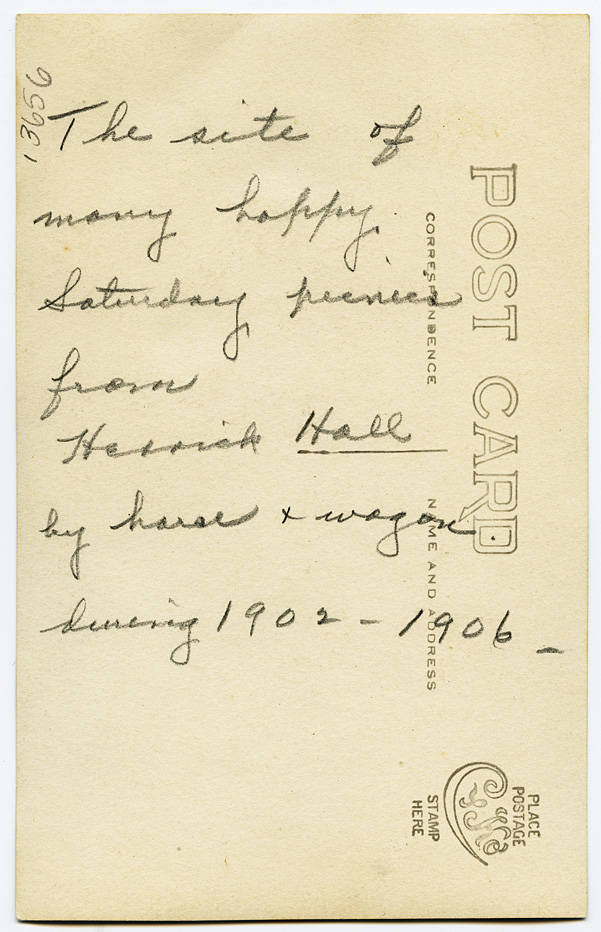 13656
The site of
many happy
Saturday picnics
from
Herrick Hall
by horse + wagon.
during 1902 - 1906 -
POST CARD
CORRESPONDENCE
NAME AND ADDRESS
PLACE
POSTAGE
STAMP
HERE